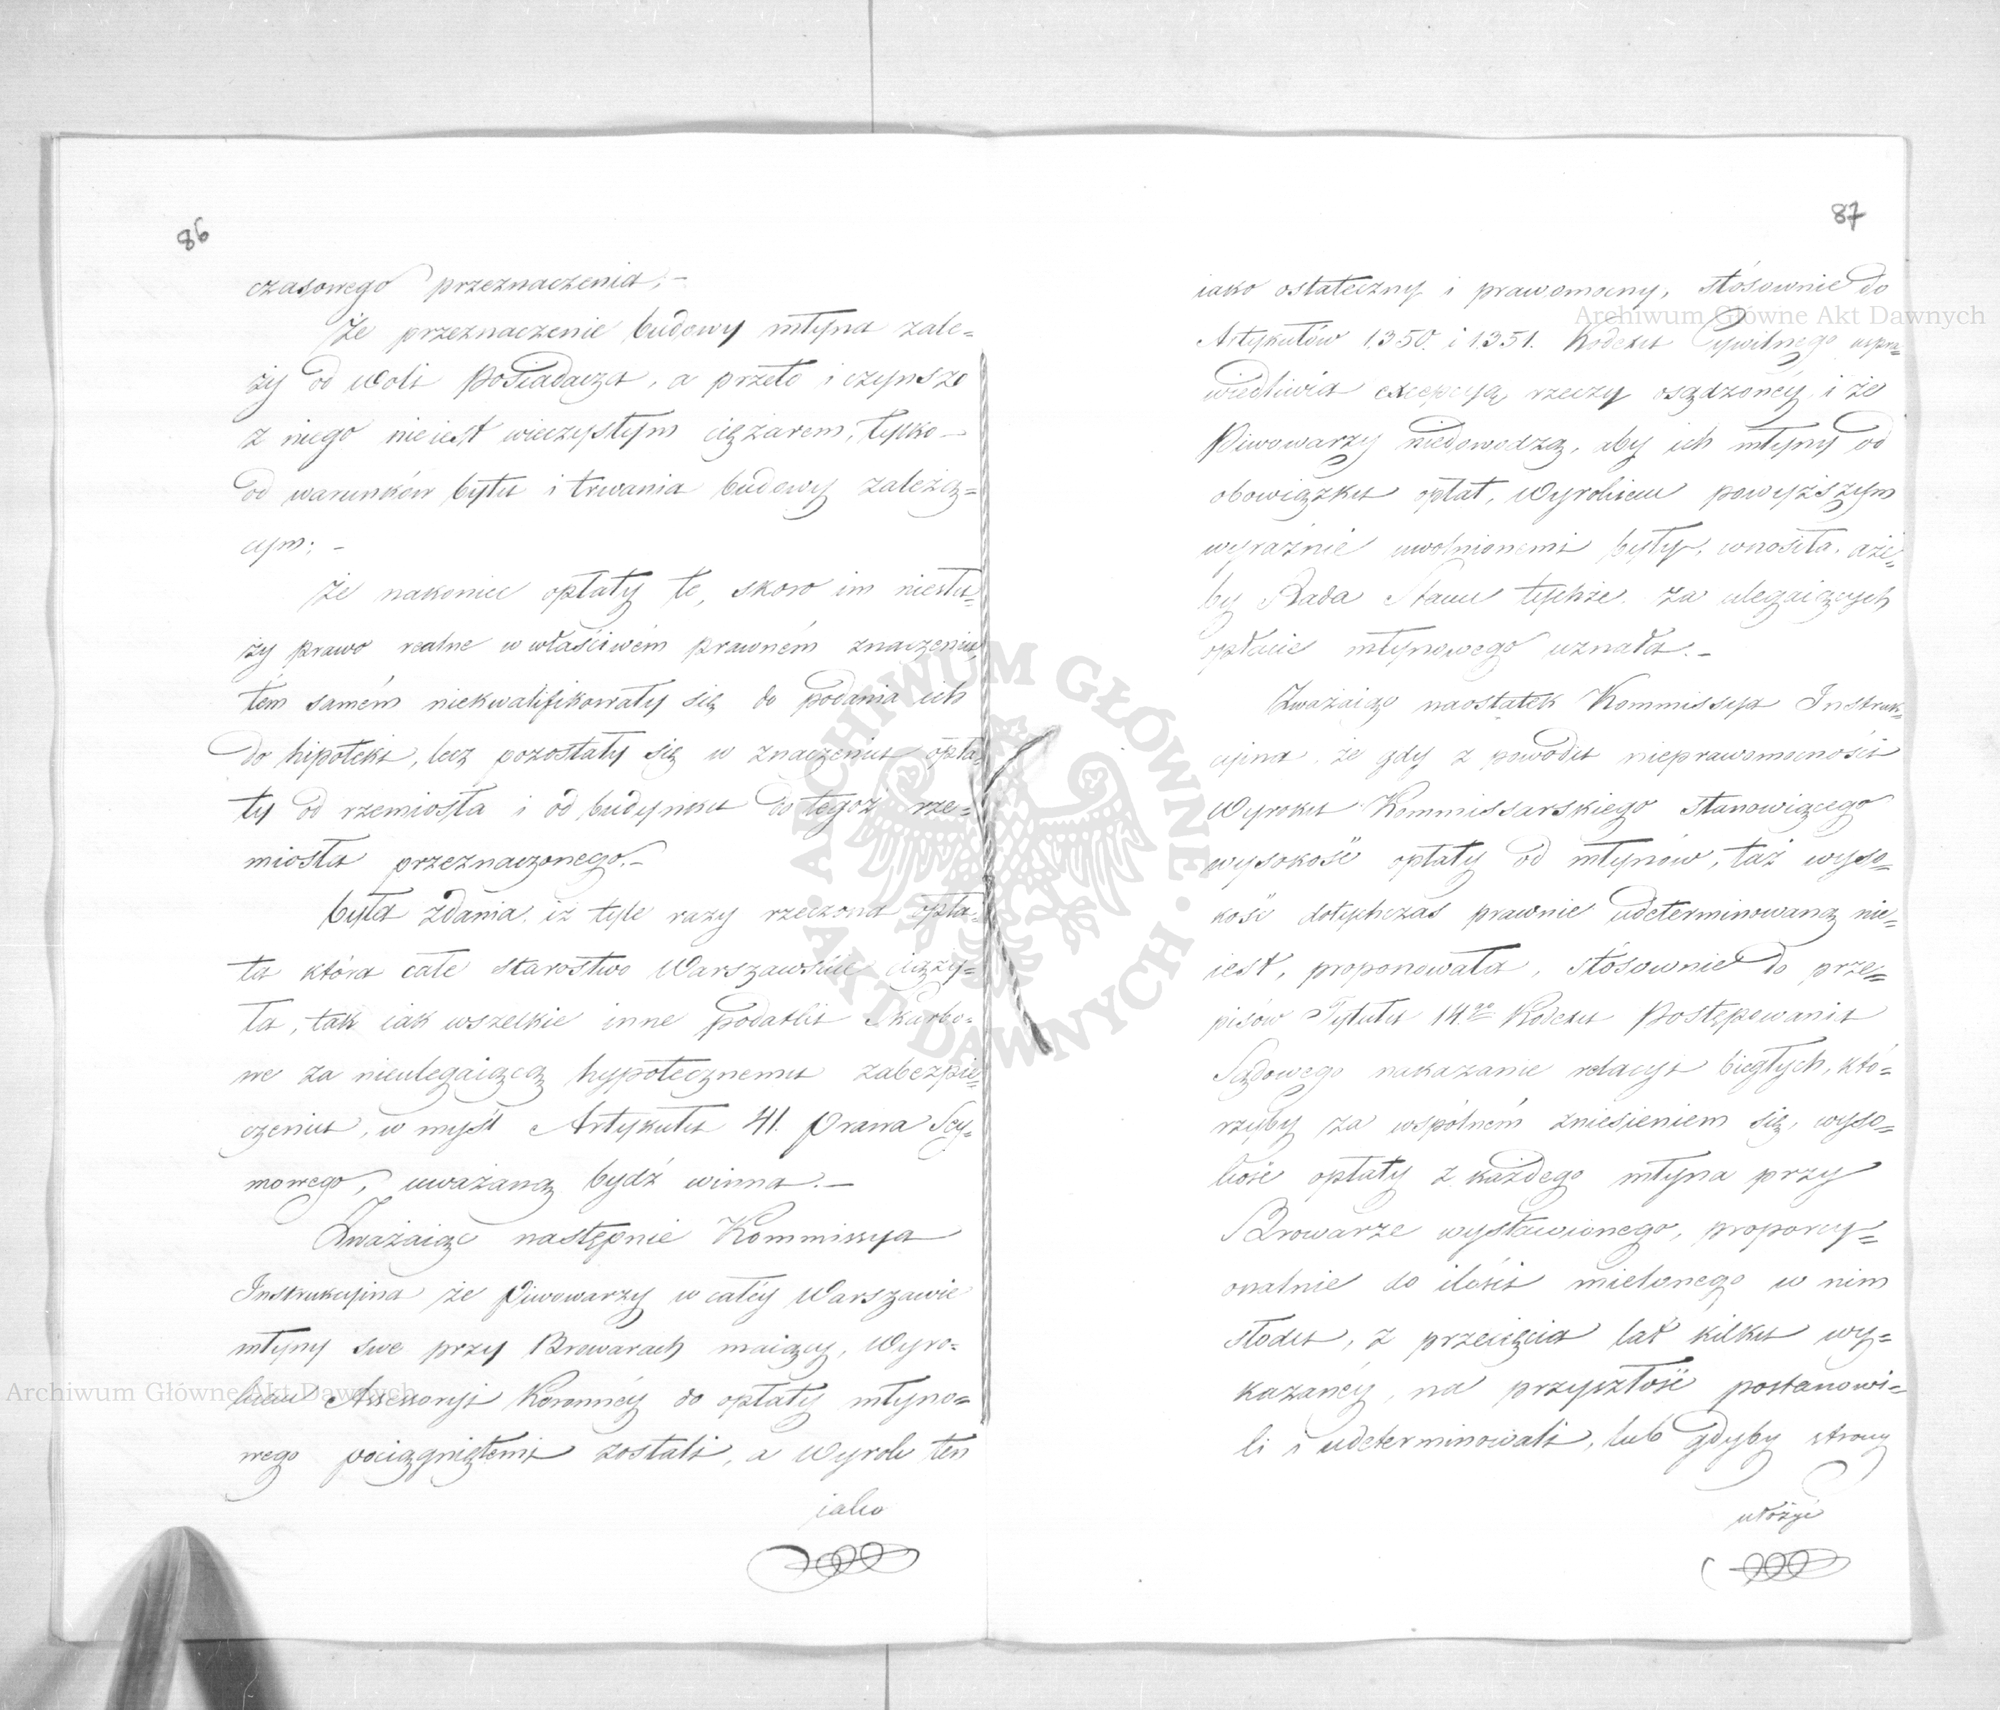 86
czasowego przeznaczenia; –
Że przeznaczenie budowy młyna zale=
ży od woli Posiadacza, a przeto i czynsze
z niego nie iest wieczystym ciężarem, tylko –
od warunków bytu i trwania budowy zależą=
cym; –
Że nakoniec opłaty te, skoro im niesłu=
ży prawo realne w właściwém prawném znaczeniu,
tém samém niekwalifikowały się do podania ich
do hipoteki, lecz pozostały się w znaczeniu opła=
ty od rzemiosła i od budynku do tegoż rze=
miosła przeznaczonego. –
była zdania, iż tyle razy rzeczona opła=
ta która całe Starostwo Warszawskie ciąży=
ła, tak iak wszelkie inne podatki Skarbo=
we za nieulegaiącą hypotecznemu zabezpie=
czeniu, w myśl Artykułu 41. Prawa Sey=
mowego, uważaną bydź winna. –
Zważaiąc następnie Kommissya
Instrukcyina że Piwowarzy w całéy Warszawie
młyny swe przy Browarach maiący, Wyro=
kiem Assessoryi Koronnéy do opłaty młyno=
wego pociągniętemi zostali, a Wyrok ten
iako
87
iako ostateczny i prawomocny, stósownie do
Artykułów 1350. i 1351. Kodexu Cywilnego uspra=
wiedliwia excepcyą rzeczy osądzonéy i że
Piwowarzy niedowodzą, aby ich młyny od
obowiązku opłat, Wyrokiem powyższym
wyraźnie uwolnionemi były, wnosiła, aże=
by Rada Stanu tychże za ulegaiących
opłacie młynowego uznała. –
Zważaiąc naostatek Kommissya Instruk=
cyina, że gdy z powodu nieprawomocności
Wyroku Kommissarskiego stanowiącego
wysokość opłaty od młynów, taż wyso=
kość dotychczas prawnie udeterminowaną nie=
iest, proponowała, stósownie do prze=
pisów Tytułu 14go Kodexu Postępowania
Sądowego nakazanie relacyi biegłych, któ=
rzyby za wspólném zniesieniem się, wyso=
kość opłaty z każdego młyna przy
Browarze wystawionego, proporcy=
onalnie do ilości mielonego w nim
słodu, z przecięcia lat kilku wy=
kazanéy, na przyszłość postanowi=
li i udeterminowali, lub gdyby strony
ułożyć
Archiwum Główne Akt Dawnych
Archiwum Główne Akt Dawnych
ARCHIWUM GŁÓWNE · AKT DAWNYCH ·